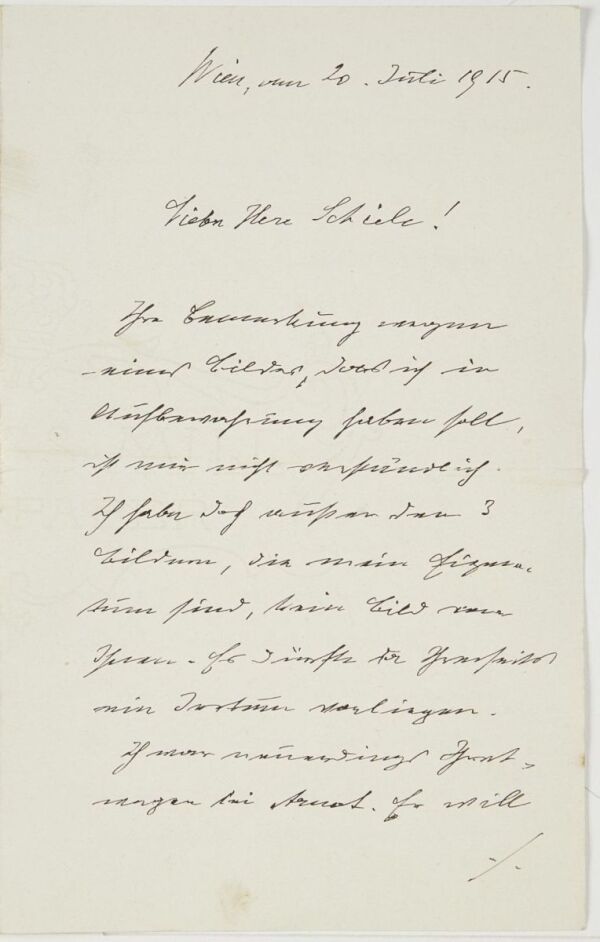 Wien, am 20. Juli 1915.
Lieber Herr Schiele!
Ihre Bemerkung wegen
eines Bildes, das ich in
Aufbewahrung haben soll,
ist mir nicht verständlich.
Ich habe doch außer den 3
Bildern, die mein Eigen-
tum sind, kein Bild von
Ihnen. Es dürfte da Ihrerseits
ein Irrtum vorliegen.
Ich war neuerdings Ihret-
wegen bei Arnot. Er will
./.